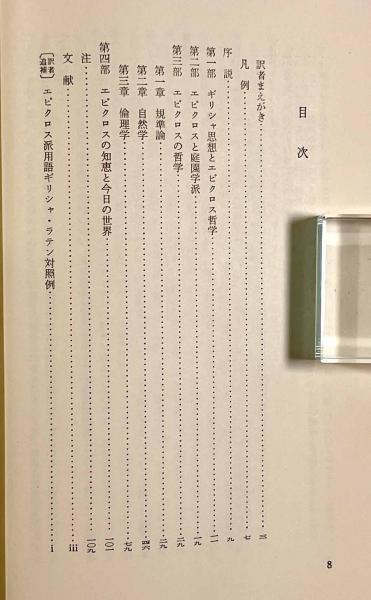 目次
訳者まえがき……三
凡例……七
序説……九
第一部 ギリシャ思想とエピクロス哲学……一一
第二部 エピクロスと庭園学派……一九
第三部 エピクロスの哲学……二九
第一章 規準論……二九
第二章 自然学……四六
第三章 倫理学……七九
第四部 エピクロスの知恵と今日の世界……一〇一
注……一〇九
文献……iii
〔訳者追補〕 エピクロス派用語ギリシャ・ラテン対照例……i
8